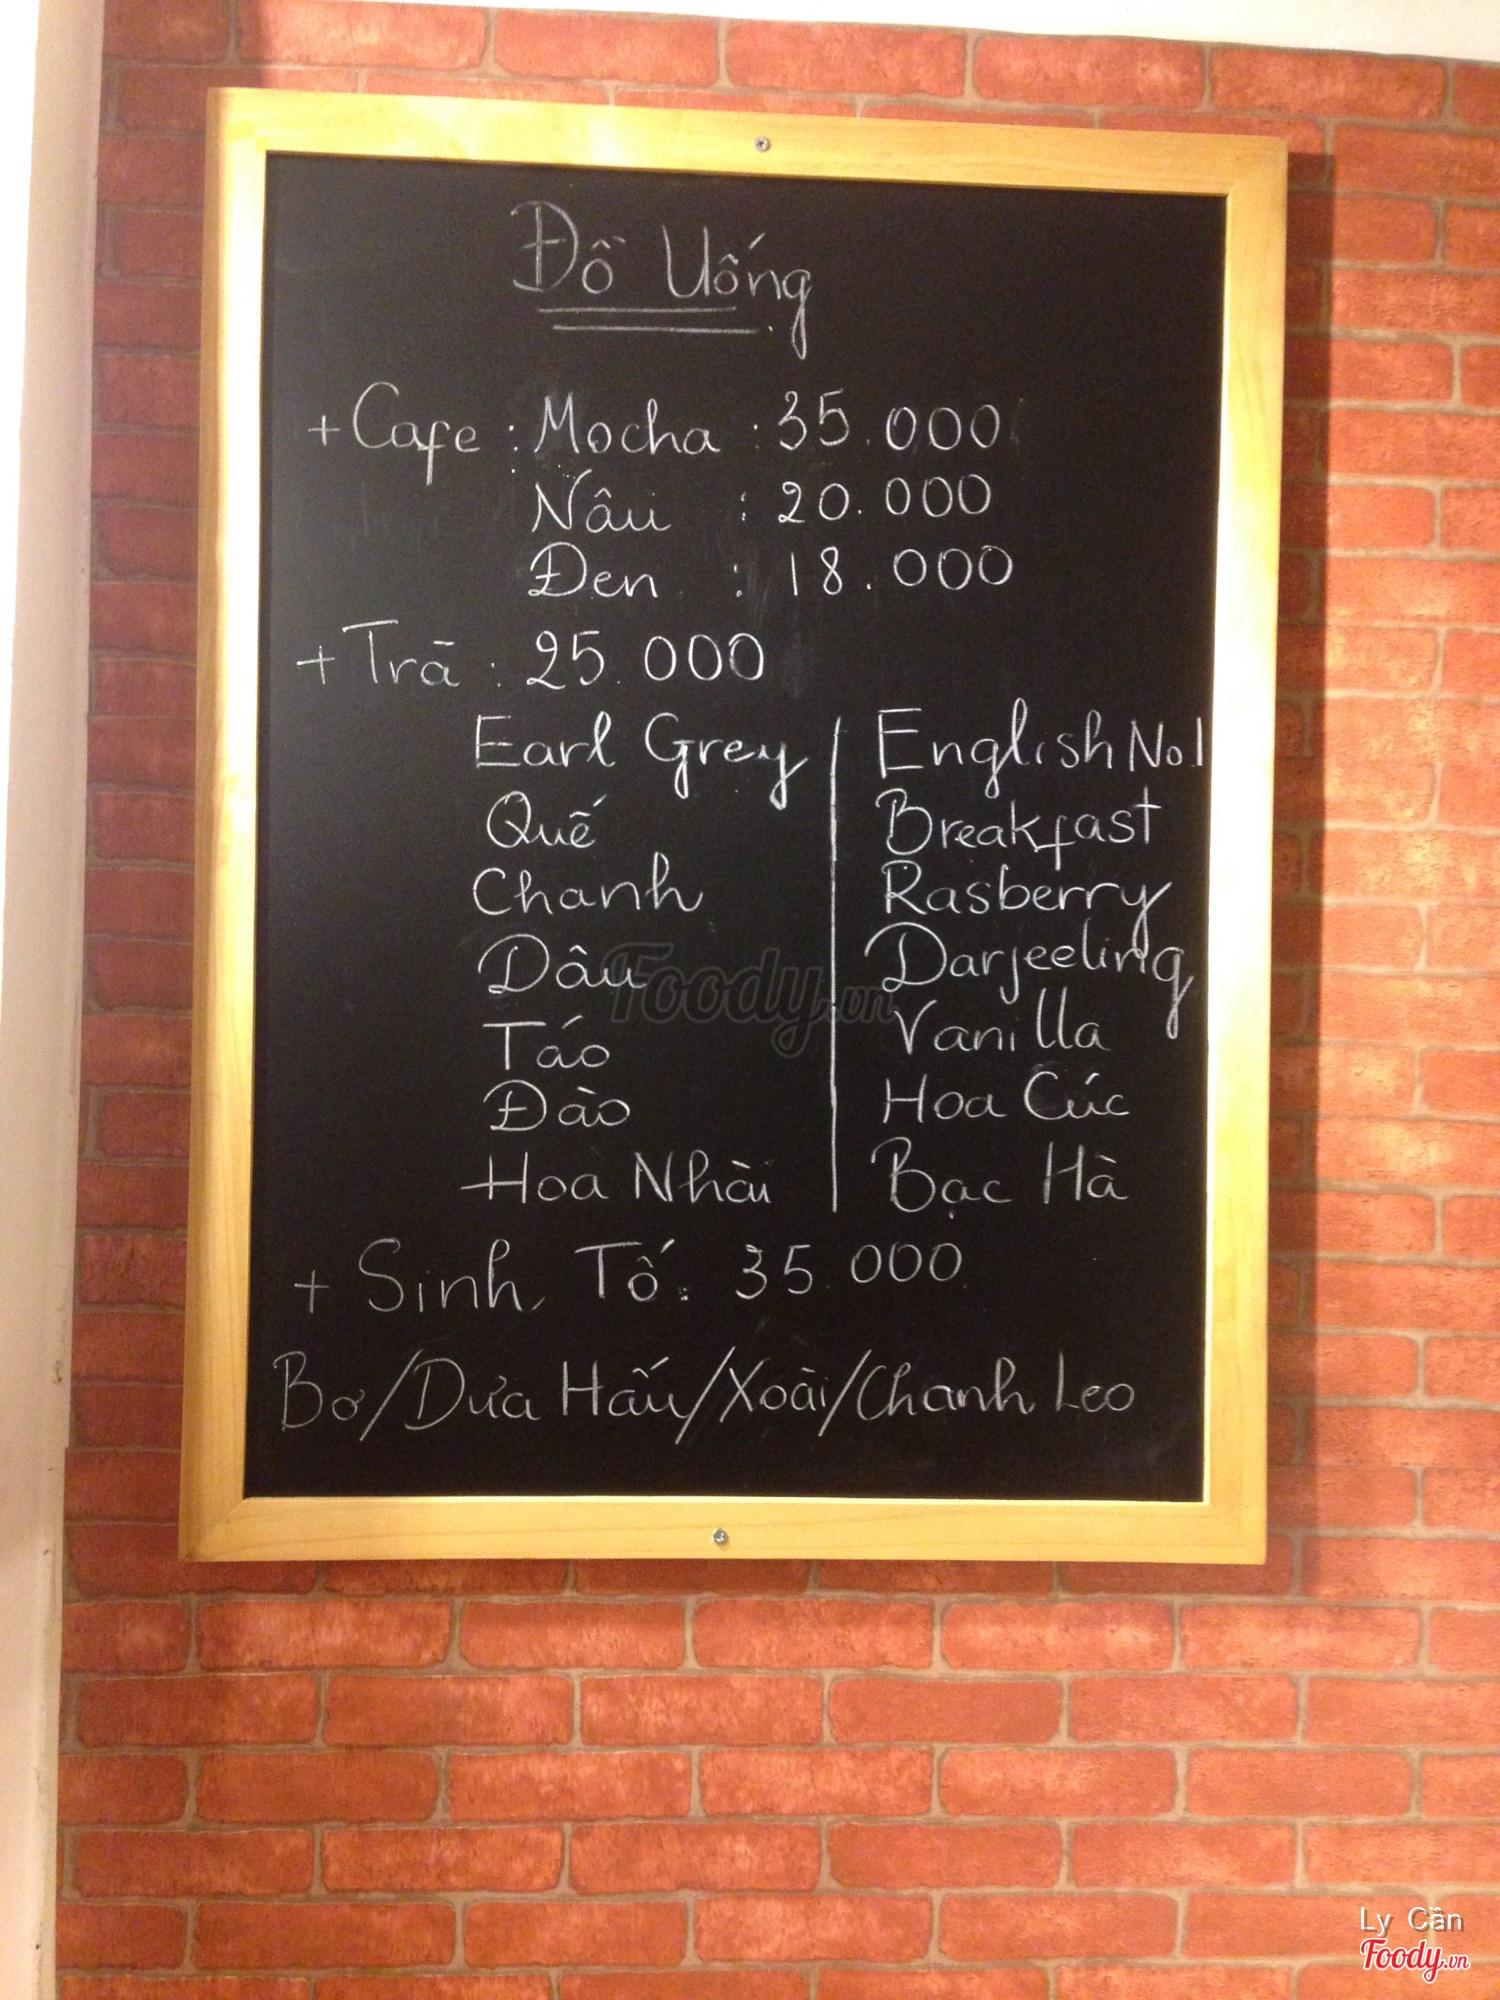 Đồ Uống
+ Cafe : Mocha : 35.000
Nâu : 20.000
Đen : 18.000
+ Trà : 25.000
Earl Grey | English No.1
Quế | Breakfast
Chanh | Rasberry
Dâu | Darjeeling
Táo | Vanilla
Đào | Hoa Cúc
Hoa Nhài | Bạc Hà
+ Sinh Tố : 35.000
Bơ/Dưa Hấu/Xoài/Chanh Leo
Foody.vn
Ly Cần
Foody.vn